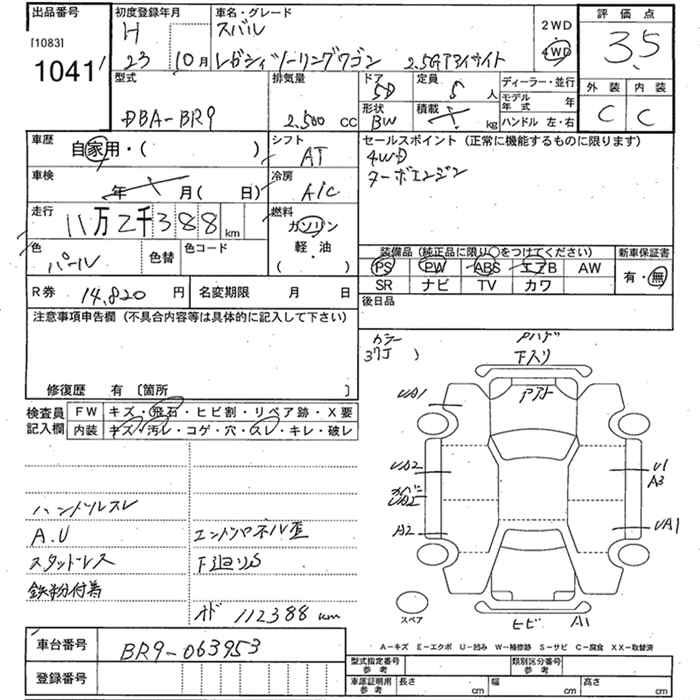 出品番号
[1083]
1041
初度登録年月
H
23 10月
車名・グレード
スバル
レガシィツーリングワゴン 2.5GTアイサイト
2WD
4WD
評価点
3.5
外装 内装
C C
型式
DBA-BR9
排気量
2.500 cc
ドア
5D
形状
BW
定員
5 人
積載
kg
ディーラー・並行
モデル年式 年
ハンドル 左・右
車歴
自家用・( )
シフト
AT
車検
年 月( 日)
冷房
A/C
走行
11万2千388 km
燃料
ガソリン
軽・油
( )
色
パール
色替
色コード
R券 14,820 円
名変期限 月 日
セールスポイント(正常に機能するものに限ります)
4WD
ターボエンジン
装備品(純正品に限り○をつけてください)
PS PW ABS エアB AW
SR ナビ TV カワ
新車保証書
有・無
後日品
注意事項申告欄(不具合内容等は具体的に記入して下さい)
修復歴 有 〔箇所 〕
検査員記入欄
FW キズ・飛石・ヒビ割・リペア跡・X要
内装 キズ・汚レ・コゲ・穴・スレ・キレ・破レ
ハンドルスレ
A.U
スタッドレス
鉄粉付着
エンドパネル歪
下廻りS
オド 112388 km
カラー
37J )
Pハゲ
下入り
Pアト
UA1
UA2
カバー
UA2
A2
U1
A3
UA1
ヒビ A1
スペア
A-キズ E-エクボ U-凹み W-補修跡 S-サビ C-腐食 XX-取替済
車台番号 BR9-063953
登録番号
型式指定番号 参考
類別区分番号 参考
車庫証明用 参考
長さ cm 幅 cm 高さ cm